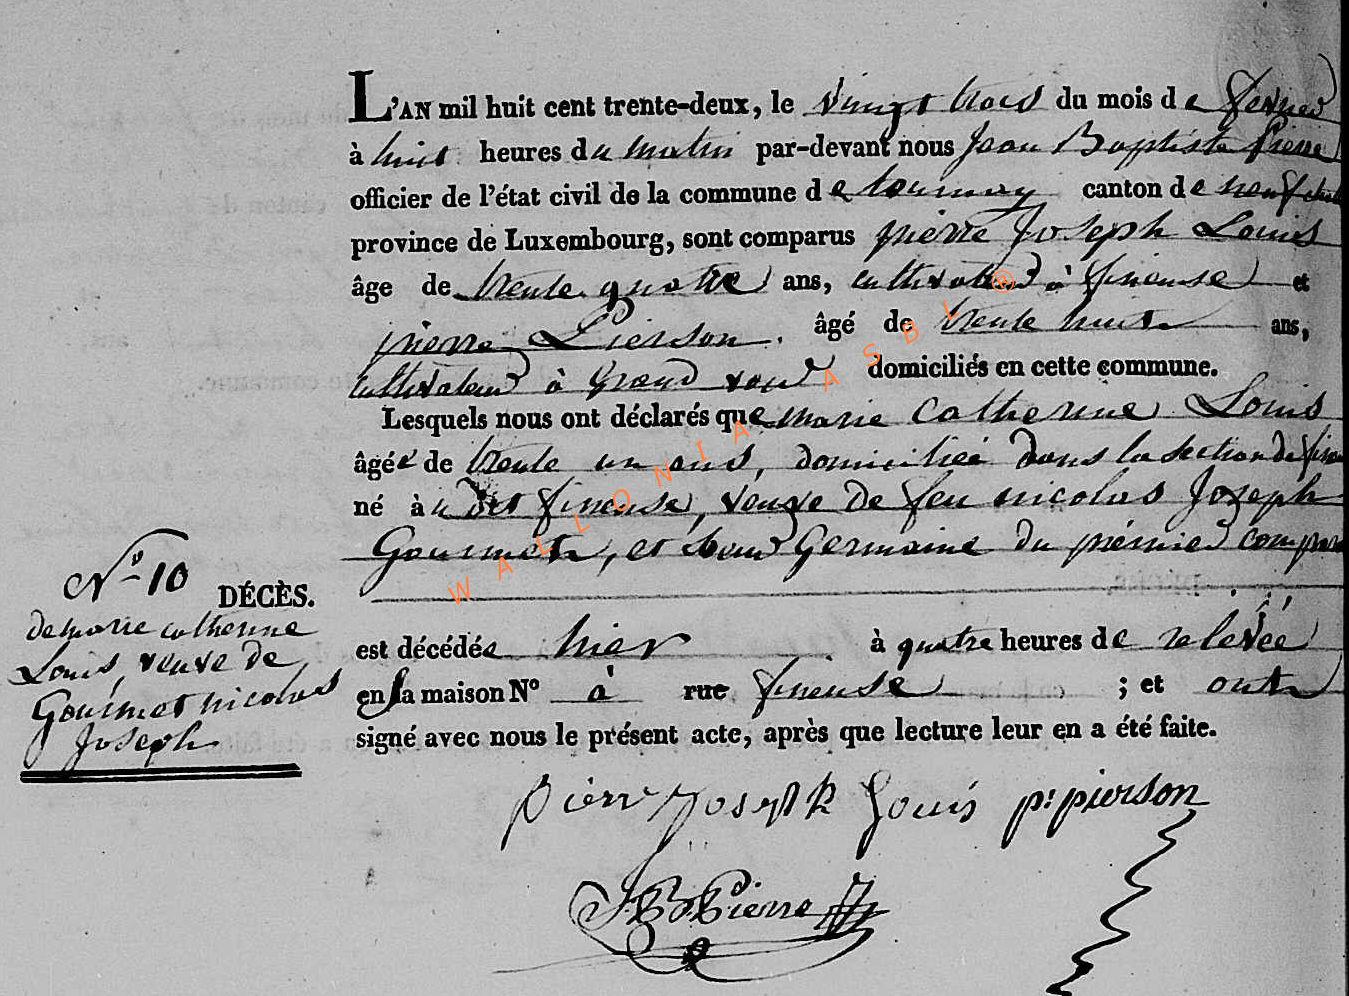 L'AN mil huit cent trente-deux, le vingt trois du mois de fevrier
à huit heures du matin par-devant nous Jean Baptiste Pierre
officier de l'état civil de la commune de tournay canton de neufchateau
province de Luxembourg, sont comparus pierre Joseph Louis
âge de trente quatre ans, cultivateur à fineuse et
pierre Pierson. âgé de trente huit ans,
cultivateur à Grand voir domiciliés en cette commune.
Lesquels nous ont déclarés que marie catherine Louis
âgée de trente un ans, domiciliée dans la section de
né à u dit fineuse, veuve de feu nicolas Joseph
Gourmet, et Germaine du piémier
N° 10
DÉCÈS.
de marie catherine
Louis, veuve de
Gourmet nicolas
Joseph
est décédée hier à quatre heures de relevée
en sa maison N° à rue fineuse ; et ont
signé avec nous le présent acte, après que lecture leur en a été faite.
pierre Joseph Louis p: pierson
J. B. Pierre
WALLONIA ASBL ®